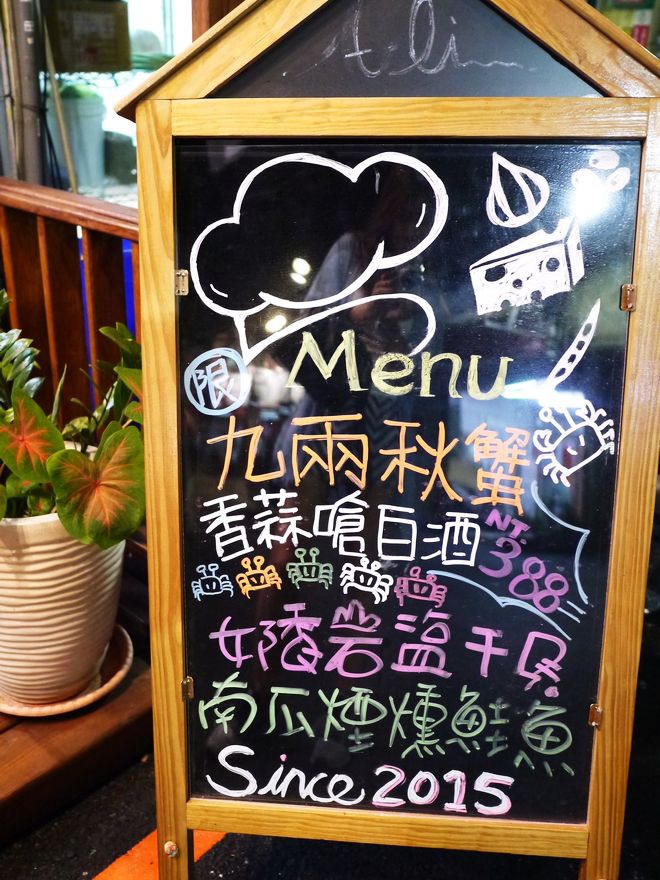 Menu
限
九兩秋蟹
香蒜嗆白酒
NT.388
岩鹽干貝
南瓜煙燻鮭魚
Since 2015